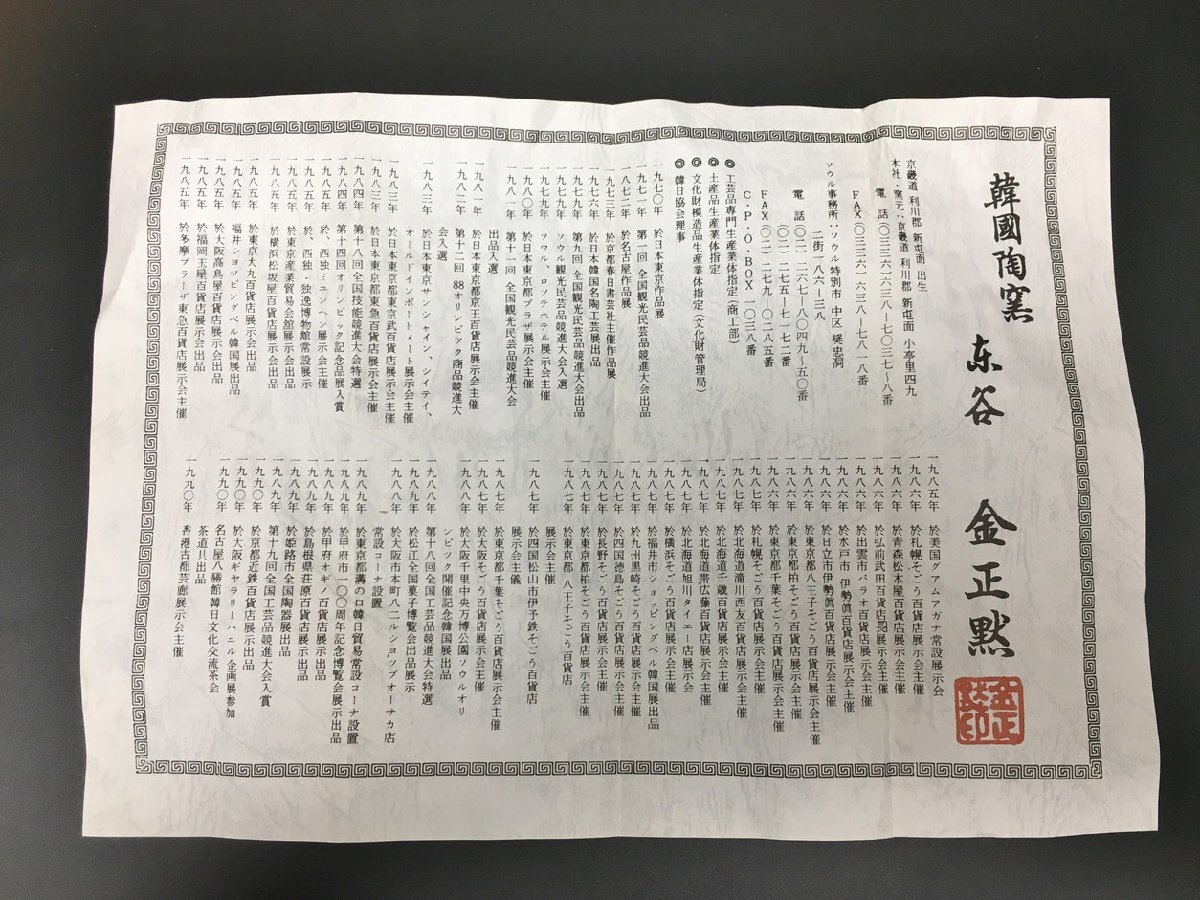 韓國陶窯
东谷 金正黙
京畿道 利川郡 新屯面 出生
本社・窯元・京畿道 利川郡 新屯面 小亭里四九
電話 〇三三六-六三八-七〇三七~八番
FAX 〇三三六-六三八-七八一八番
ソウル事務所・ソウル特別市 中区 奨忠洞
二街一八六-三八
電話 〇二-二六七-八〇四九~五〇番
〇二-二七五-七一七二番
FAX 〇二-二七九-〇二八五番
C・P・O BOX 一〇三八番
◎ 工芸品専門生産業体指定(商工部)
◎ 土産品生産業体指定
◎ 文化財模造品生産業体指定(文化財管理局)
◎ 韓日協会理事
一九七〇年 於日本東京作品展
一九七一年 第一回 全国観光民芸品競進大会出品
一八七二年 於名古屋作品展
一九七三年 於京都春日書芸社主催作品展
一九七六年 於日本韓国名陶工芸展出品
一九七九年 第九回 全国観光民芸品競進大会出品
一九七九年 ソウル観光民芸品競進大会入選
一九七九年 ソウル、ロッテホテル展示会主催
一九八〇年 於日本東京都プラザ展示会主催
一九八一年 第十一回 全国観光民芸品競進大会
出品入選
一九八一年 於日本東京都京王百貨店展示会主催
一九八二年 第十二回 88オリンピック商品競進大
会入選
一九八三年 於日本東京サンシャイン、シイティ、
オールドインポートメート展示会主催
一九八三年 於日本東京都東京武百貨店展示会主催
一九八三年 於日本東京都東急百貨店展示会主催
一九八四年 第十八回全国技能競進大会特選
一九八四年 第十四回オリンピック記念品展入賞
一九八五年 於、西独ミュンヘン展示会主催
一九八五年 於、西独・独逸博物館常設展示
一九八五年 於東京産業貿易会舘展示会主催
一九八五年 於横浜松坂屋百貨店展示会主催
一九八五年 於東京大丸百貨店展示会出品
一九八五年 福井ショッピングベル韓国展出品
一九八五年 於大阪高島屋百貨店展示会出品
一九八五年 於福岡玉屋百貨店展示会出品
一九八五年 於多摩プラーザ東急百貨店展示会主催
一九八五年 於美国グアムアガナ常設展示会
一九八六年 於札幌そごう百貨店展示会主催
一九八六年 於青森松木屋百貨店展示会主催
一九八六年 於弘前武田百貨店展示会主催
一九八六年 於出雲市パラオ百貨店展示会主催
一九八六年 於水戸市 伊勢甚百貨店展示会主催
一九八六年 於日立市伊勢甚百貨店展示会主催
一九八六年 於東京都八王子そごう百貨店展示会主催
一九八六年 於東京都柏そごう百貨店展示会主催
一九八六年 於東京都千葉そごう百貨店展示会主催
一九八七年 於札幌そごう百貨店展示会主催
一九八七年 於北海道滝川西友百貨店展示会主催
一九八七年 於北海道千歳百貨店展示会主催
一九八七年 於北海道帯広藤百貨店展示会主催
一九八七年 於北海道旭川タイエー店展示会
一九八七年 於横浜そごう百貨店展示会主催
一九八七年 於福井市ショッピングベル韓国展出品
一九八七年 於九州黒崎そごう百貨店展示会主催
一九八七年 於四国徳島そごう百貨店展示会主催
一九八七年 於長野そごう百貨店展示会主催
一九八七年 於東京都柏そごう百貨店展示会主催
一九八七年 於東京都八王子そごう百貨店
展示会主催
一九八七年 於四国松山市伊予鉄そごう百貨店
展示会主儀
一九八七年 於東京都千葉そごう百貨店展示会主催
一九八七年 於大阪そごう百貨店展示会主催
一九八八年 於大阪千里中央万博公園ソウルオリ
ンピック開催記念韓国展出品
一九八八年 第十八回全国工芸品競進大会特選
一九八九年 於松江全国菓子博覧会出品展示
一九八八年 於大阪市本町八二ルショップオーサカ店
常設コーナ設置
一九八九年 於東京都溝の口韓日貿易常設コーナ設置
一九八九年 於甲府市一〇〇周年記念博覧会展示出品
一九八九年 於甲府オギノ百貨店展示出品
一九八九年 於島根県荘原百貨店展示出品
一九八九年 於姫路市全国陶器展出品
一九八九年 第十九回全国工芸品競進大会入賞
一九九〇年 於京都近鉄百貨店展示出品
一九九〇年 於大阪ギャラリーハニル企画展参加
一九九〇年 名古屋八勝館韓日文化交流茶会
茶道具出品
一九九〇年 香港古都芸廊展示会主催